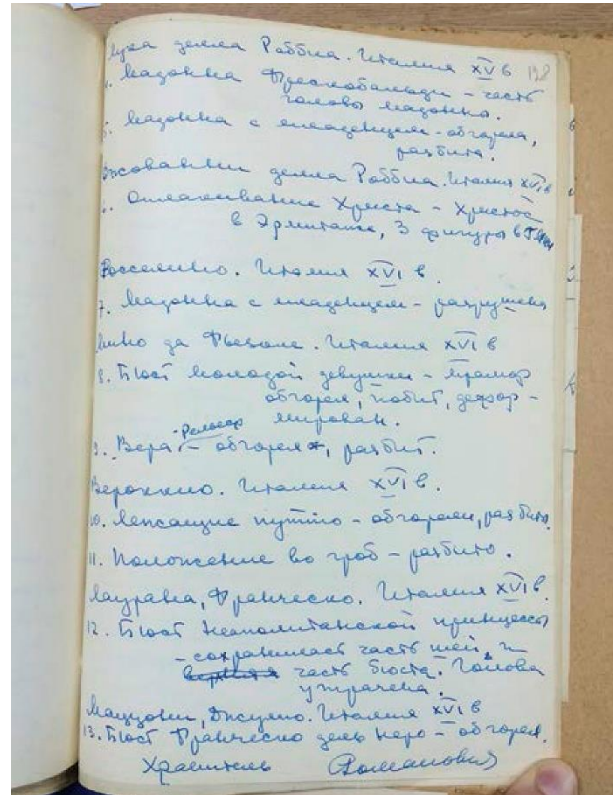 Лука делла Роббиа. Италия XV в 138
4. Мадонна Фрескобальди – часть
головы мадонны.
5. Мадонна с младенцем – обгорела,
разбита.
Джованни делла Роббиа. Италия XVI в
6. Оплакивание Христа – Христос
в Эрмитаже, 3 фигуры в
Росселино. Италия XVI в.
7. Мадонна с младенцем – разрушена
Мино да Фьезоле. Италия XVI в
8. Бюст молодой девушки – мрамор
обгорел, побит, дефор-
мирован.
9. Вера – рельеф – обгорел, разбит.
Вероккио. Италия XVI в.
10. Лежащие путто – обгорели, разбиты
11. Положение во гроб – разбито.
Лаурана, Франческо. Италия XVI в.
12. Бюст неаполитанской принцессы
– сохранилась часть шеи и
часть бюста. Голова
утрачена.
Маццони, Джулио. Италия XVI в
13. Бюст Франческо дель Неро – обгорел.
Хранитель Романович